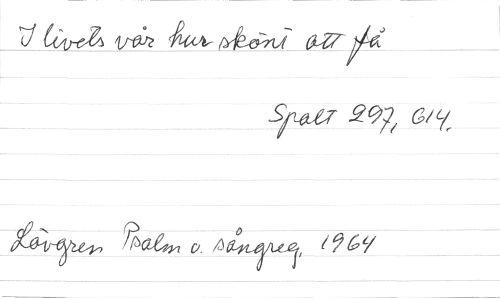 I livets vår hur skönt att få
Spalt 297, 614.
Lövgren Psalm o. sångreg. 1964